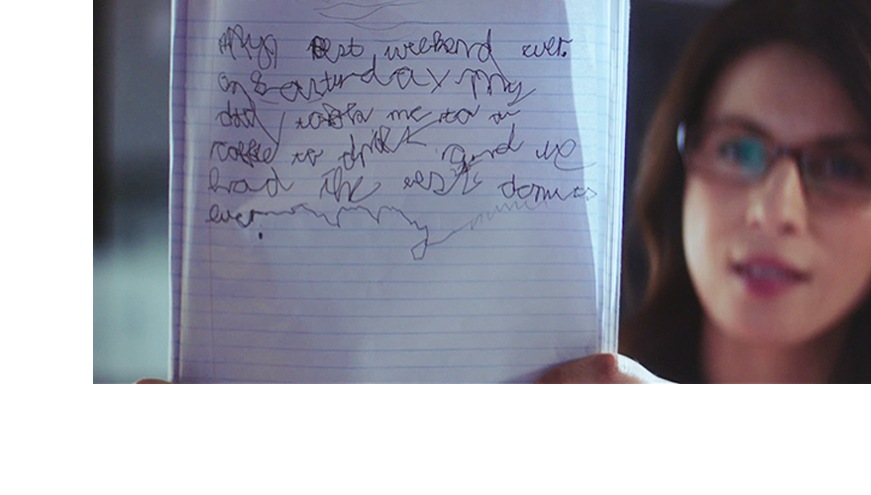 My Best weekend ever.
on Saturday My
dad me to
coffee to drink and we
had the best
ever.